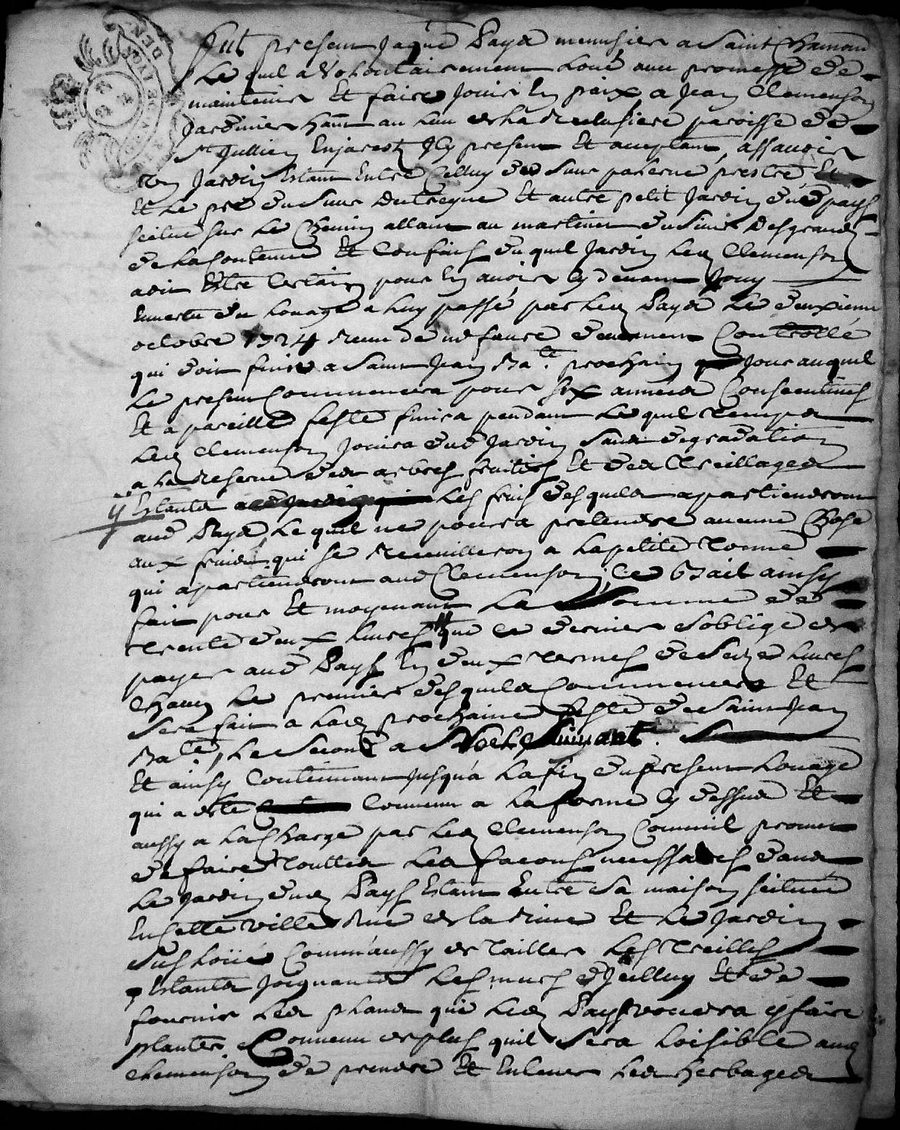 Fut present Jaque Paya menusier a Saint Chamand
Lequel a Volontairement Loué avec promesse de
maintenir Et faire Jouir En paix a Jean Clemenson
Jardinier hant au lieu de la paroisse de
St Jullien Enjarest Icy present Et acceptant, assavoir
Un Jardin Estant Entre Celluy de Sieur prestre,
Et le pré du Sieur Et autre petit Jardin dud paya
scitué sur le Chemin allant au martinet du Sieur Desgrand
de la Contenue Et Confins duquel Jardin Led Clemenson
a dit Estre Certain pour En avoir Cy devant Jouy
En vertu du Louage a Luy passé par Led Paya Le deuxieme
octobre 1724 Controllé
qui doit finir a Saint Jean Bate prochain Jour auquel
Le present Commencera pour Six années Consecutives
Et a pareille feste finira pendant Lequel temps
Led Clemenson Jouira dud Jardin Sans degradation
a la Reserve des arbres fruitiers Et des treillages
y Estants Les fruis desquels apartiendront
aud Paya, Lequel ne poura pretendre aucune Chose
aux fruits qui se Recuilleron a La petite tonne
qui apartiendront aud Clemenson, Ce Bail ainsy
fait pour Et moyenant La Somme de
trente deux Livres que ce dernier s'oblige de
payer aud Paya En deux termes de Seize Livres
Chacun Le premier desquels Commencera Et
Sera fait a Lad prochaine feste de Saint Jean
Bate, Le Second a Noel Suivant.
Et ainsy Continuant Jusqu'a La fin du present Louage
qui a esté Convenu a La forme Cy dessus Et
aussy a la Charge par Led Clemenson Comm'il promet
de faire touttes Les façons necessaires dans
Le Jardin dud Paya Estant Entre Sa maison scituée
En cette ville Rue de la Rive Et Le Jardin
Sus Loüé Comm'aussy de tailler Les treilles
y Estants Joignants Les murs d'Icelluy Et de
fournir Les plants que Led Paya voudra y faire
planter, Convenu de plus qu'il Sera Loisible aud
Clemenson de prendre Et Enlever Les herbages